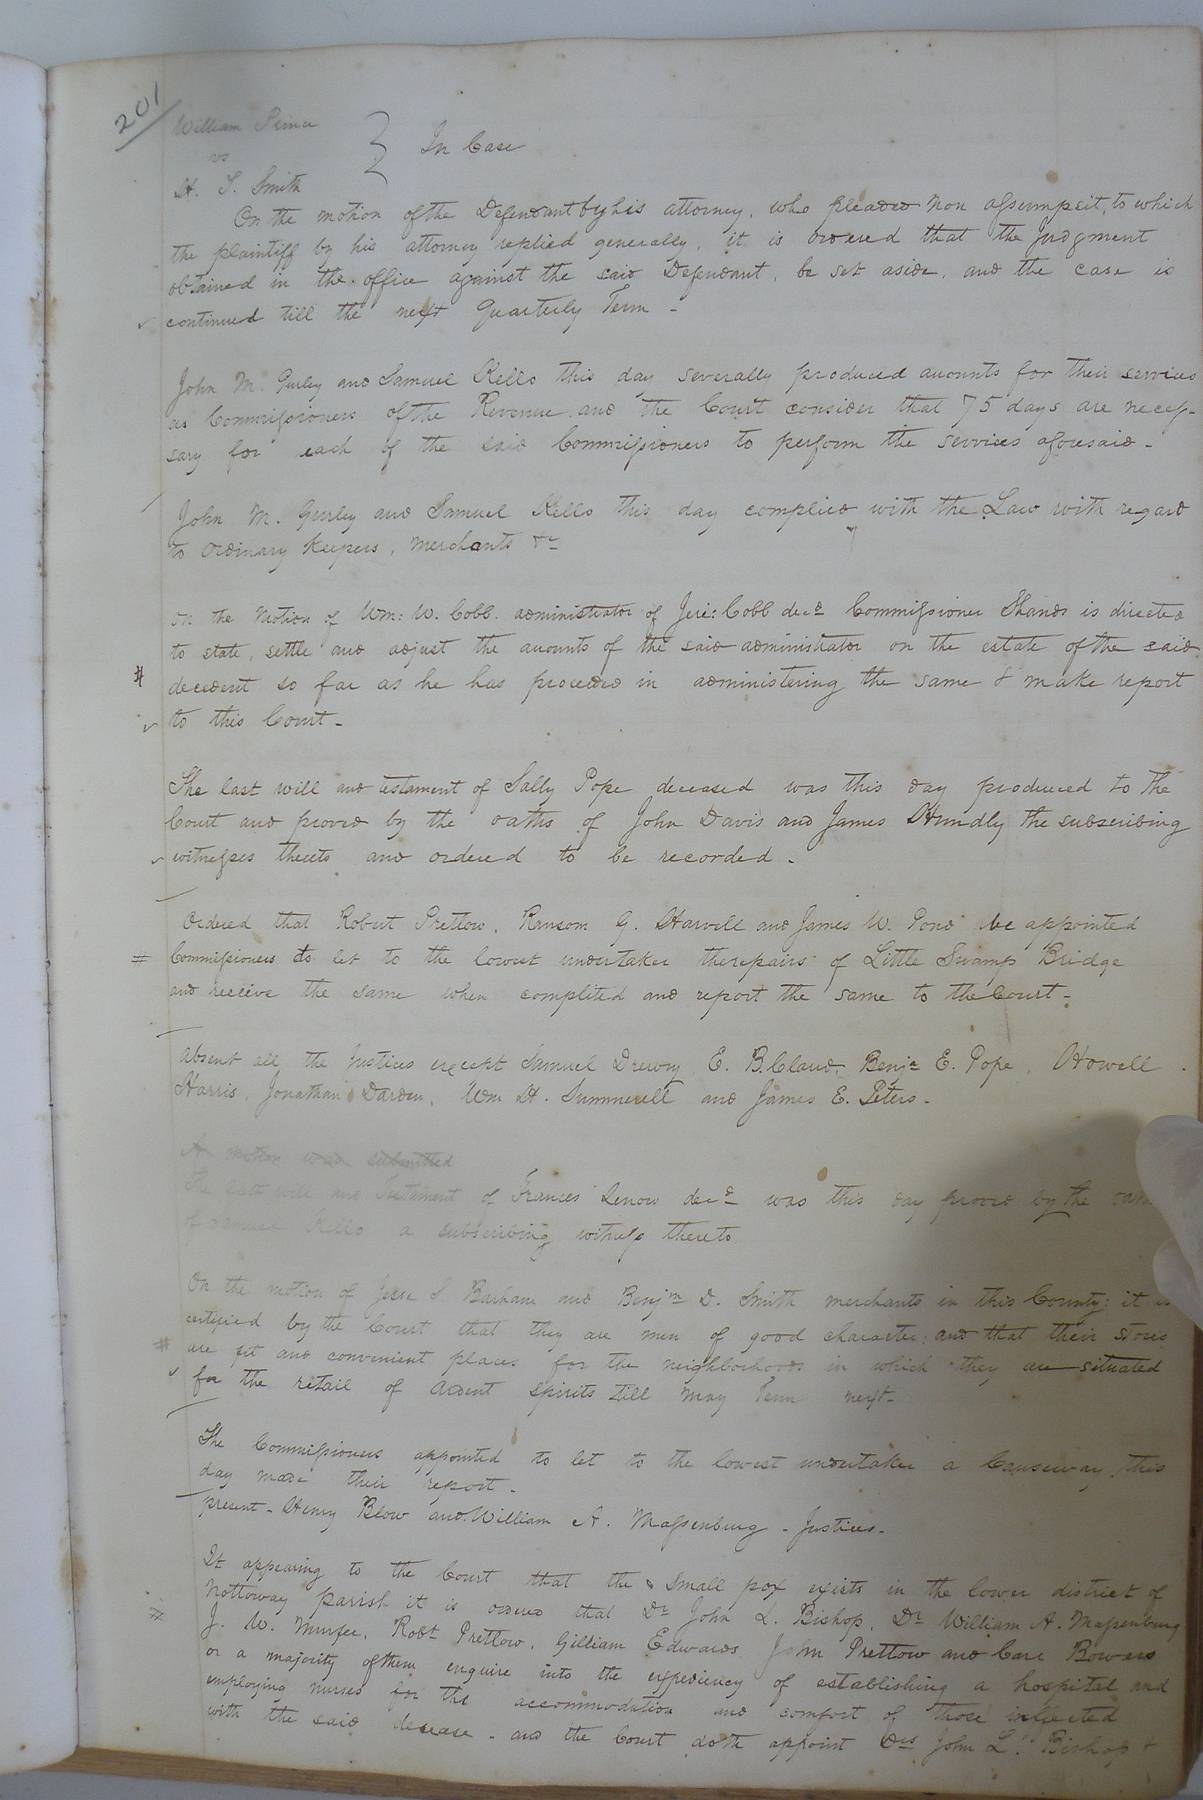 201
William Prince
vs
H. S. Smith
} In Case
On the motion of the Defendant by his attorney, who pleaded non assumpsit, to which
the plaintiff by his attorney replied generally, it is ordered that the judgment
obtained in the office against the said Defendant, be set aside, and the case is
continued till the next Quarterly Term -
John M. Gurley and Samuel Kello this day severally produced accounts for their services
as Commissioners of the Revenue and the Court consider that 75 days are neces-
sary for each of the said Commissioners to perform the services aforesaid -
John M. Gurley and Samuel Kello this day complied with the Law with regard
to Ordinary Keepers, Merchants &c
On the motion of Wm: W. Cobb. administrator of Jere: Cobb decd Commissioner Shands is directed
to state, settle and adjust the accounts of the said administrator on the estate of the said
# decedent so far as he has proceeded in administering the same & make report
to this Court -
The last will and testament of Sally Pope deceased was this day produced to the
Court and proved by the oaths of John Davis and James Hundly the subscribing
witnesses thereto and ordered to be recorded -
Ordered that Robert Pretlow, Ransom G. Harvell and James W. Pond be appointed
# Commissioners to let to the lowest undertaker the repairs of Little Swamp Bridge
and receive the same when completed and report the same to the Court -
Absent all the Justices except Samuel Drewry, E. B. Claud, Benja E. Pope, Howell
Harris, Jonathan Darden, Wm H. Summerell and James E. Peters -
A motion was submitted
The last will and Testament of Frances Lenow decd was this day proved by the oath
of Samuel Kello a subscribing witness thereto
On the motion of Jesse S Barham and Benjm D. Smith merchants in this County: it is
certified by the Court that they are men of good character; and that their stores
# are fit and convenient places for the neighborhoods in which they are situated
for the retail of Ardent spirits till May Term next -
The Commissioners appointed to let to the lowest undertaker a Causeway, this
day made their report -
present - Henry Blow and William A. Massenburg - Justices -
It appearing to the Court that the small pox exists in the lower district of
Nottoway parish it is ordered that Dr John L. Bishop, Dr William A. Massenburg
# J. W. Murfee, Robt Pretlow, Gilliam Edwards John Pretlow and Carr Bowers
or a majority of them enquire into the expediency of establishing a hospital and
employing nurses for the accommodation and comfort of those infected
with the said desease - and the Court doth appoint Drs John L. Bishop &